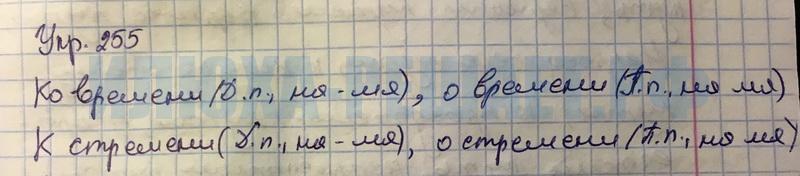 Упр. 255
Ко времени (Д.п., на -мя), о времени (П.п., на мя)
К стремени (Д.п., на -мя), о стремени (П.п., на мя)